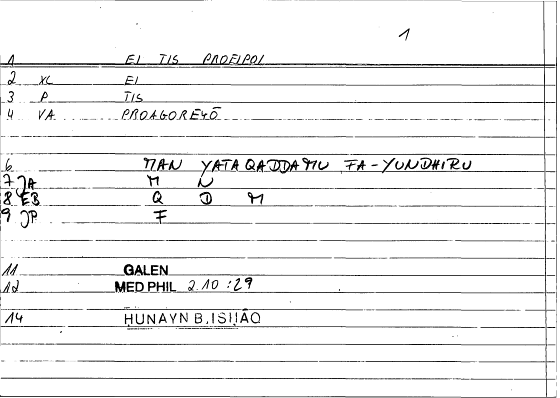 1
1 EI TIS PROEIPOI
2 XL EI
3 P TIS
4 VA PROAGOREYŌ
6 MAN YATAQADDAMU FA-YUNDHIRU
7 JA M N
8 EB Q D M
9 JP F
11 GALEN
12 MED PHIL 2.10 :29
14 HUNAYN B.ISḤĀQ